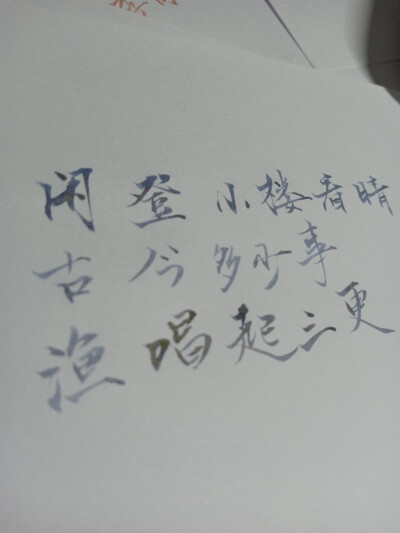 闲登小楼看晴
古今多少事
渔唱起三更